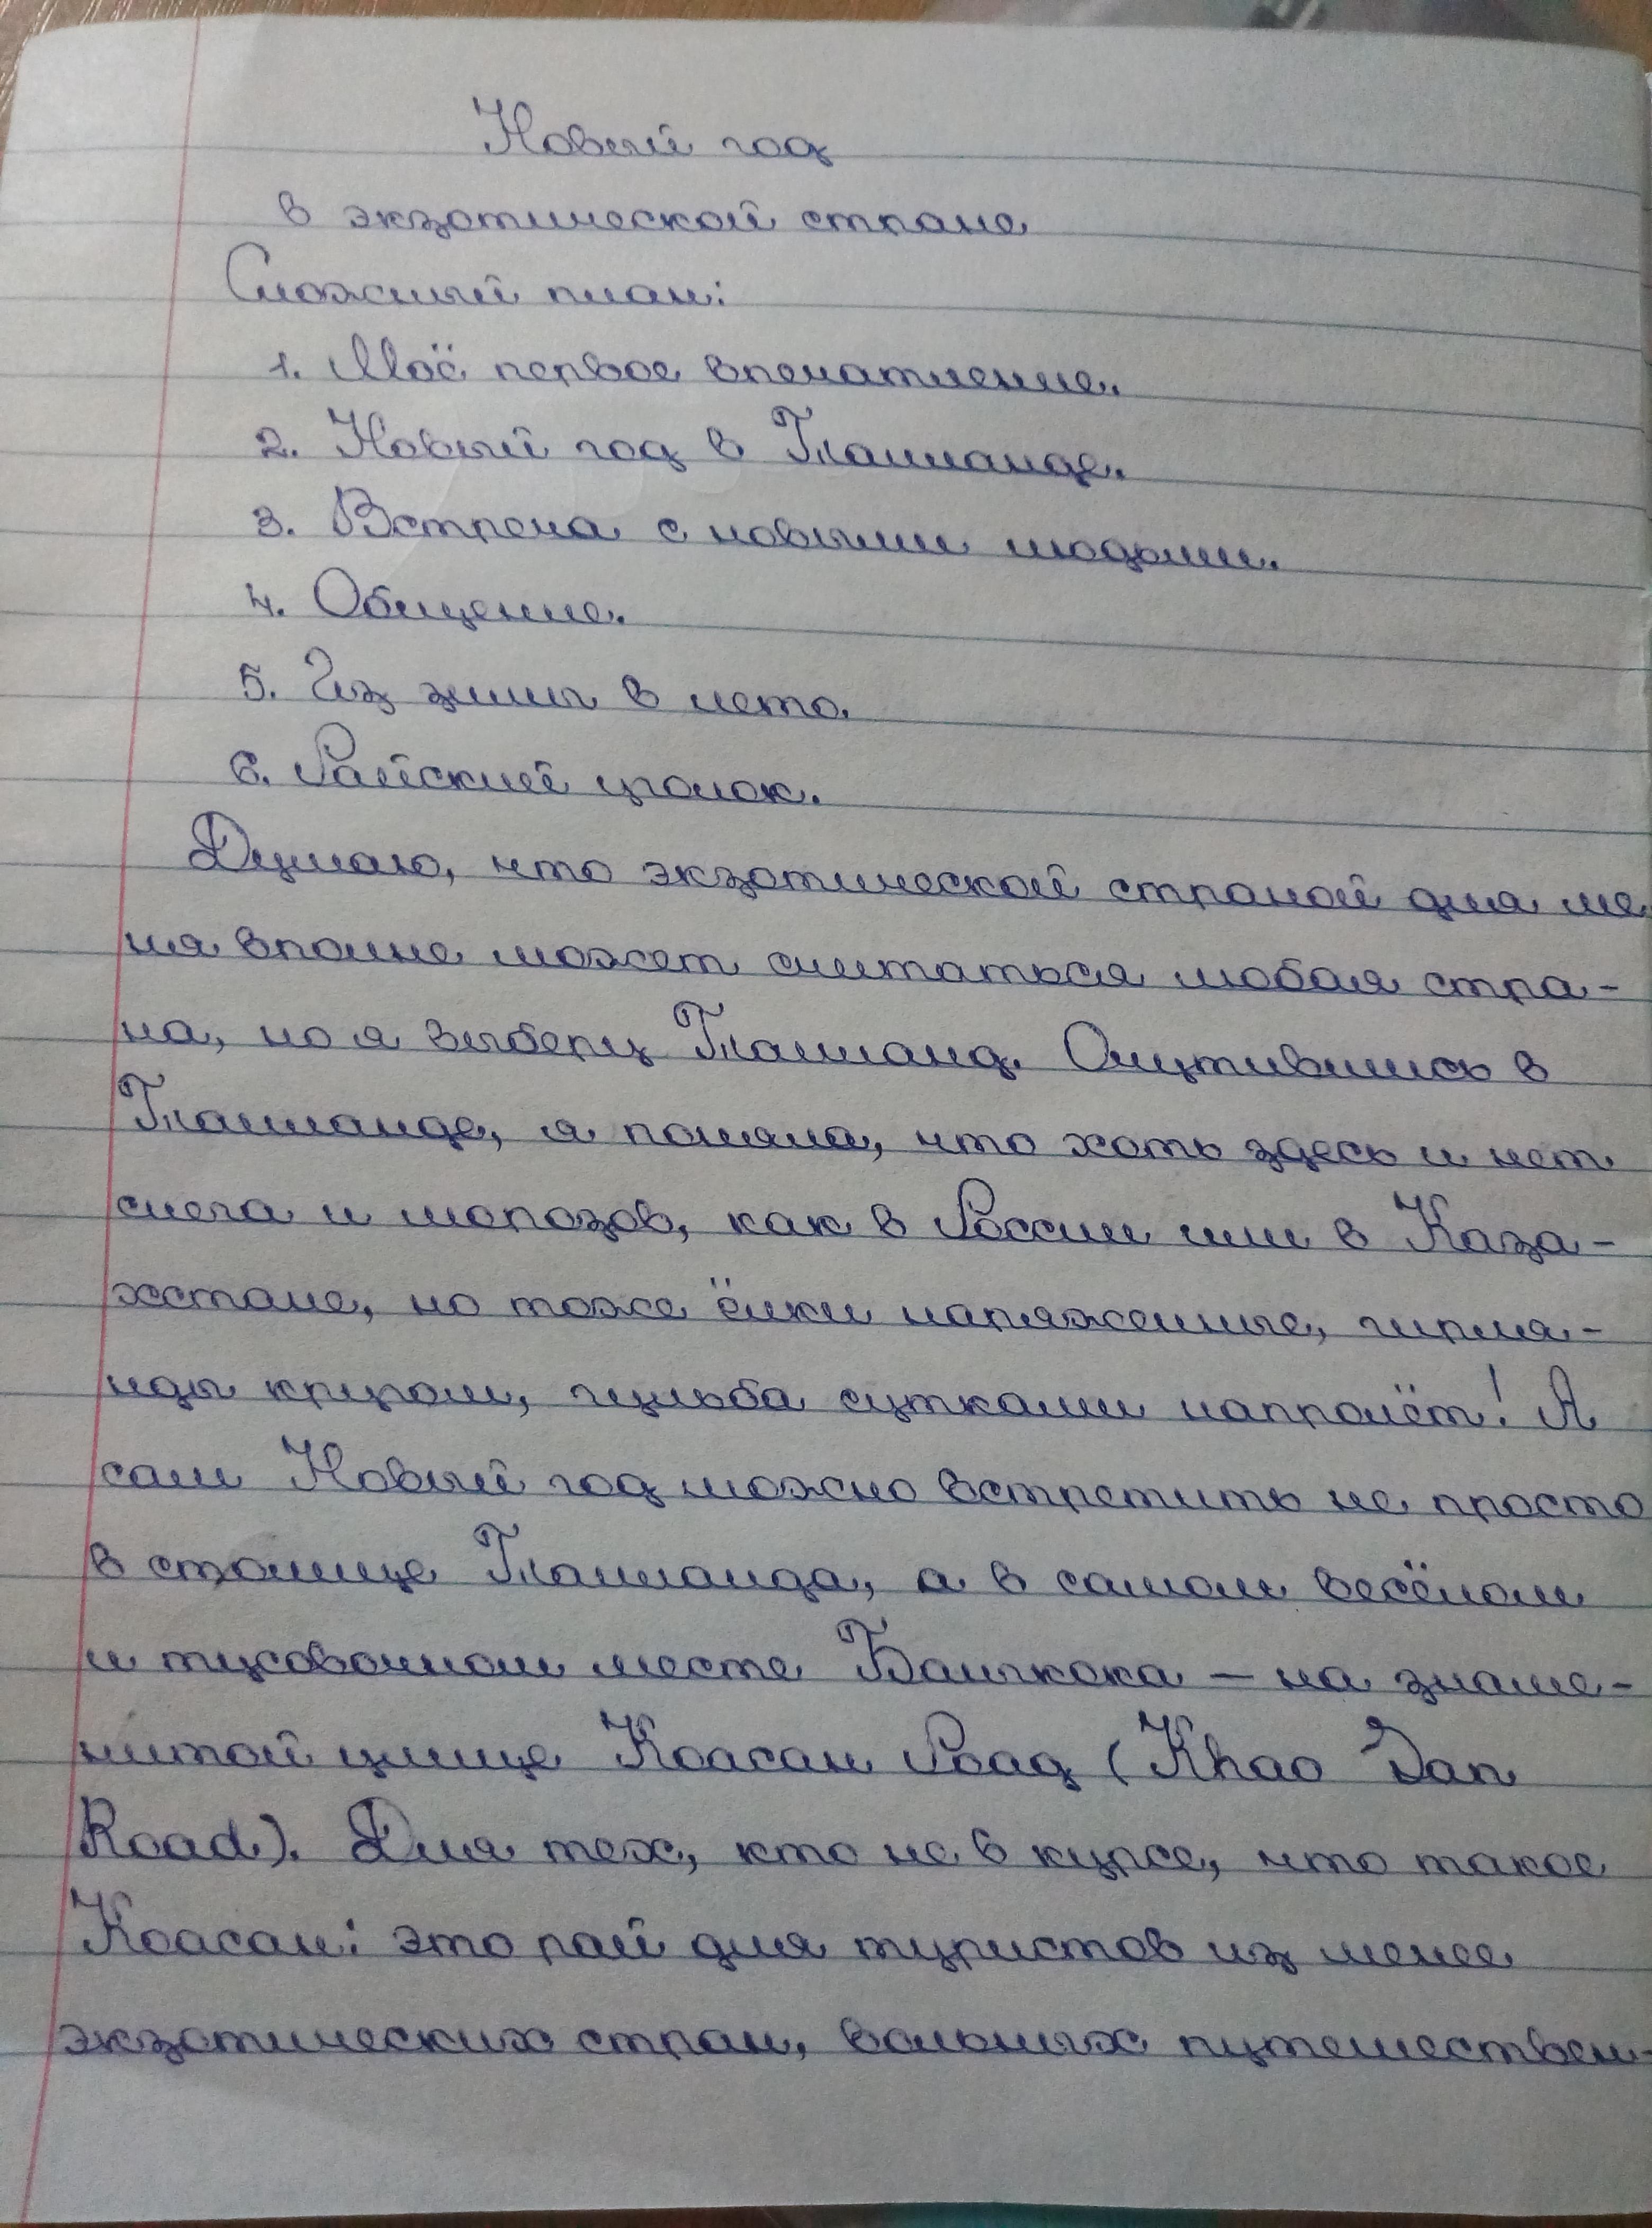 Новый год
в экзотической стране
Сложный план:
1. Моё первое впечатление.
2. Новый год в Таиланде.
3. Встреча с новыми людьми.
4. Общение.
5. Из зимы в лето.
6. Райский уголок.
Думаю, что экзотической страной для ме
ня вполне может считаться любая стра-
на, но я выберу Таиланд. Очутившись в
Таиланде, я поняла, что хоть здесь и нет
снега и морозов, как в России или в Каза-
хстане, но тоже ёлки наряженные, гирля-
нды кругом, гульба сутками напролёт! А
сам Новый год можно встретить не просто
в столице Таиланда, а в самом весёлом
и тусовочном месте Бангкока – на знаме-
нитой улице Коасан Роад (Khao San
Road). Для тех, кто не в курсе, что такое
Коасан: это рай для туристов из менее
экзотических стран, вольных путешествен-